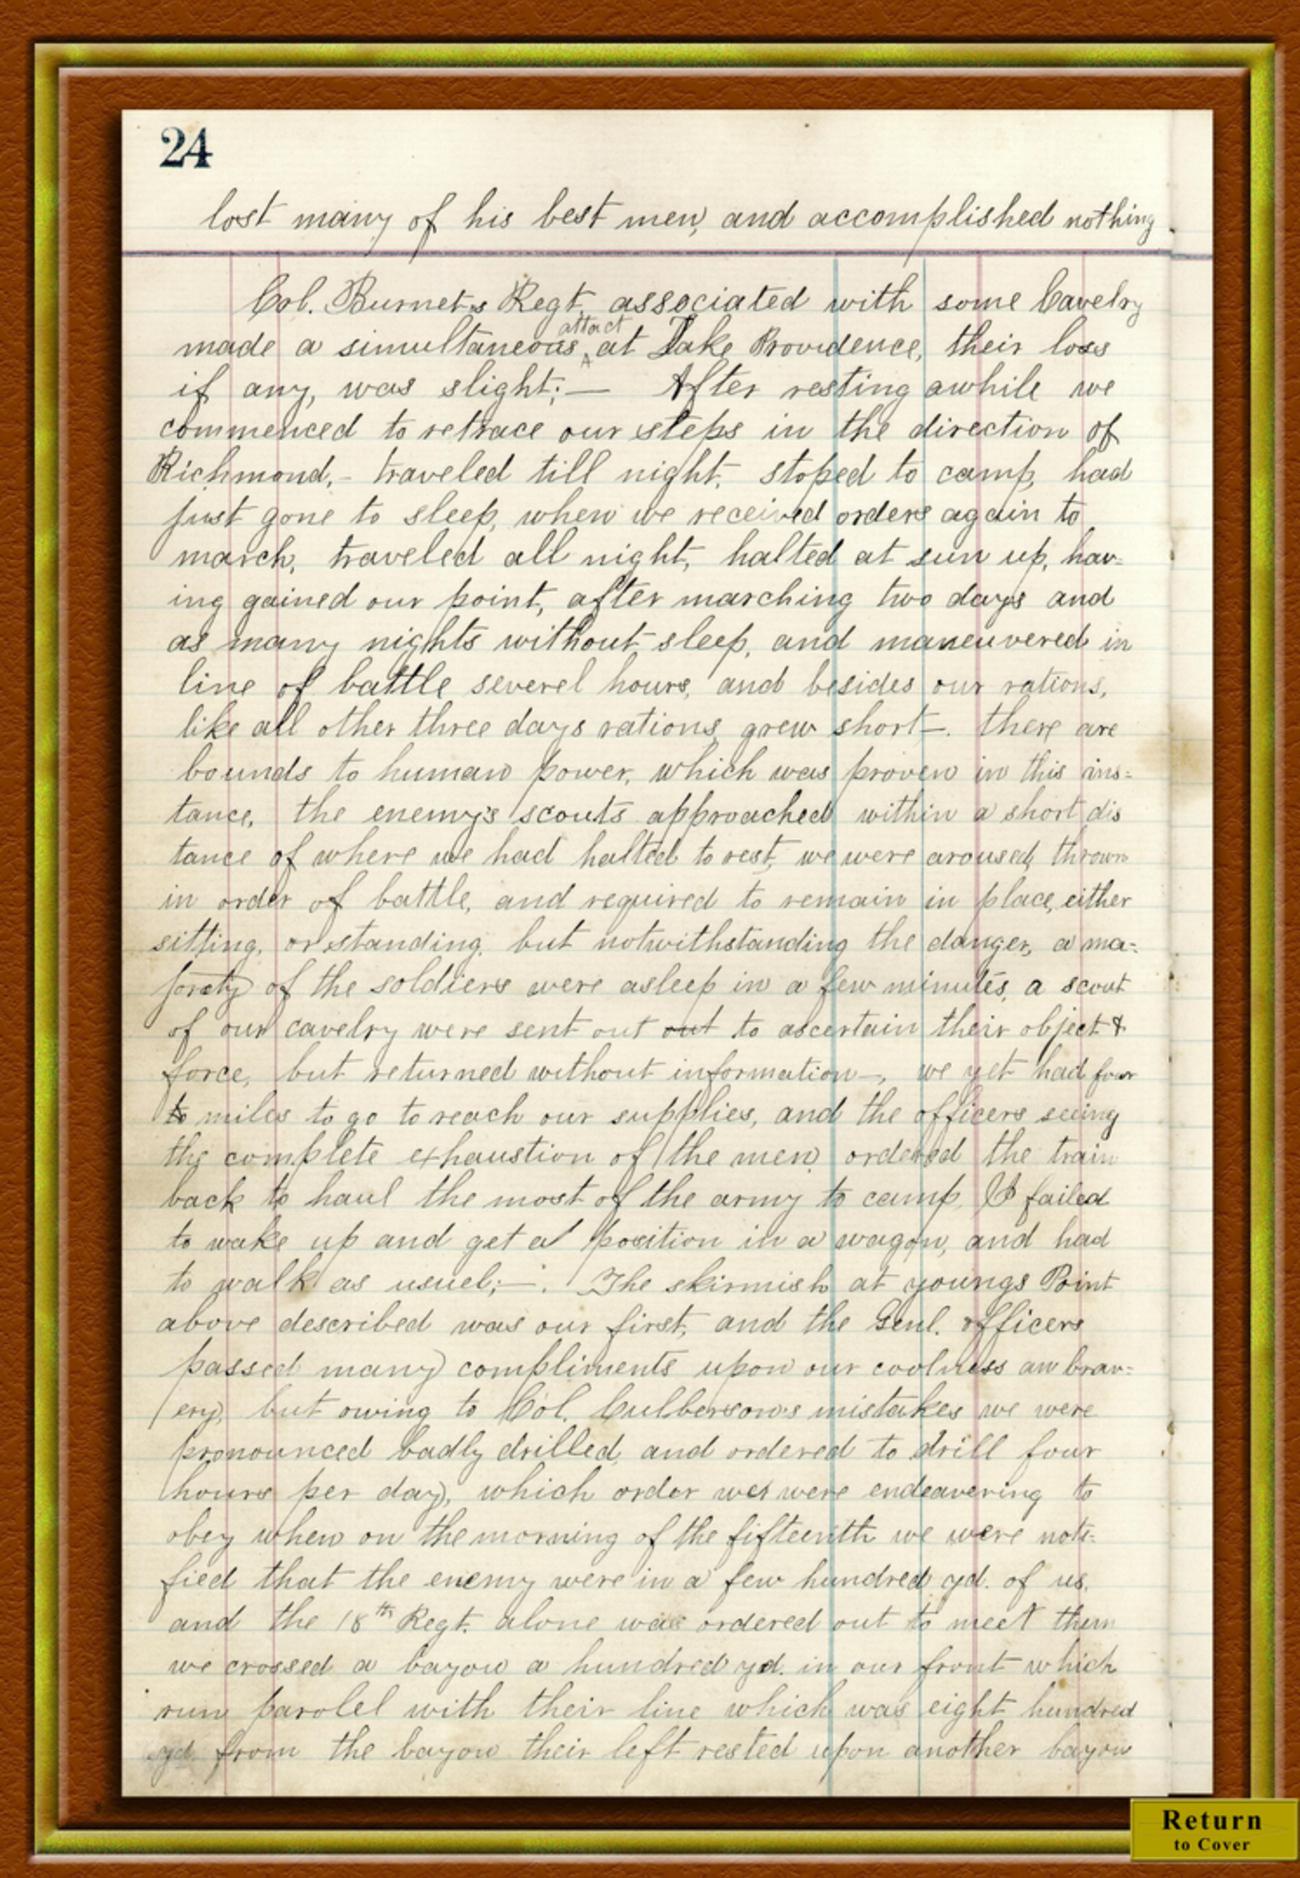 24
lost many of his best men, and accomplished nothing
Col. Burnets Regt. associated with some Cavelry
attact
made a simultaneous ^ at Lake Providence, their loss
if any, was slight;— After resting awhile we
commenced to retrace our steps in the direction of
Richmond,- traveled till night, stoped to camp, had
just gone to sleep, when we received orders again to
march, traveled all night, halted at sun up, hav-
ing gained our point, after marching two days and
as many nights without sleep, and maneuvered in
line of battle severel hours, and besides our rations,
like all other three days rations, grew short—. there are
bounds to human power, which was proven in this ins=
tance, the enemy's scouts approached within a short dis
tance of where we had halted to rest, we were aroused, thrown
in order of battle, and required to remain in place, either
sitting, or standing, but notwithstanding the danger, a ma=
jorety of the soldiers were asleep in a few minutes, a scout
of our cavelry were sent out out to ascertain their object &
force, but returned without information—, we yet had four
to miles to go to reach our supplies, and the officers seeing
the complete exhaustion of the men, ordered the train
back to haul the most of the army to camp, I failed
to wake up and get a position in a wagon, and had
to walk as usuel;—. The skirmish at youngs Point
above described was our first, and the Genl. officers
passed many compliments upon our coolness an brav=
ery, but owing to Col. Culberson's mistakes we were
pronounced badly drilled, and ordered to drill four
hours per day, which order we were endeavering to
obey when on the morning of the fifteenth we were noti-
fied that the enemy were in a few hundred yd. of us,
and the 18th Regt. alone was ordered out to meet them
we crossed a bayou a hundred yd. in our front which
run parolel with their line which was eight hundred
yd. from the bayou their left rested upon another bayou
Return
to Cover